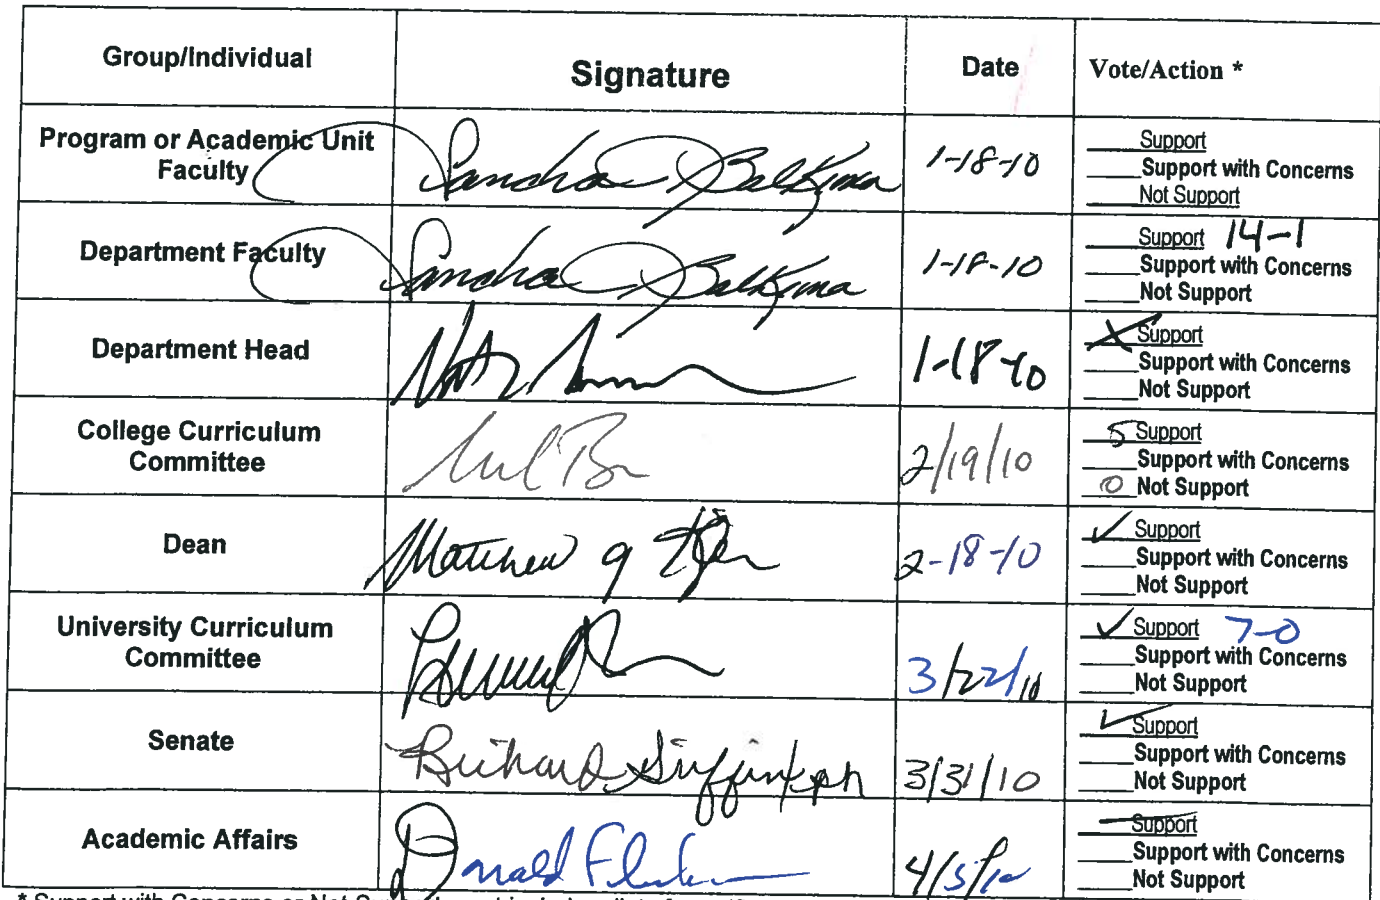 Group/Individual Signature Date Vote/Action *
Program or Academic Unit Faculty Sandra Balkema 1-18-10
___Support
___Support with Concerns
___Not Support
Department Faculty Sandra Balkema 1-18-10
___Support 14-1
___Support with Concerns
___Not Support
Department Head 1-18-10
X Support
___Support with Concerns
___Not Support
College Curriculum Committee 2/19/10
5 Support
___Support with Concerns
0 Not Support
Dean Matthew 2-18-10
✓ Support
___Support with Concerns
___Not Support
University Curriculum Committee 3/22/10
✓ Support 7-0
___Support with Concerns
___Not Support
Senate Richard 3/31/10
✓ Support
___Support with Concerns
___Not Support
Academic Affairs Donald 4/5/10
Support
___Support with Concerns
___Not Support
* Support with Concerns or Not Support